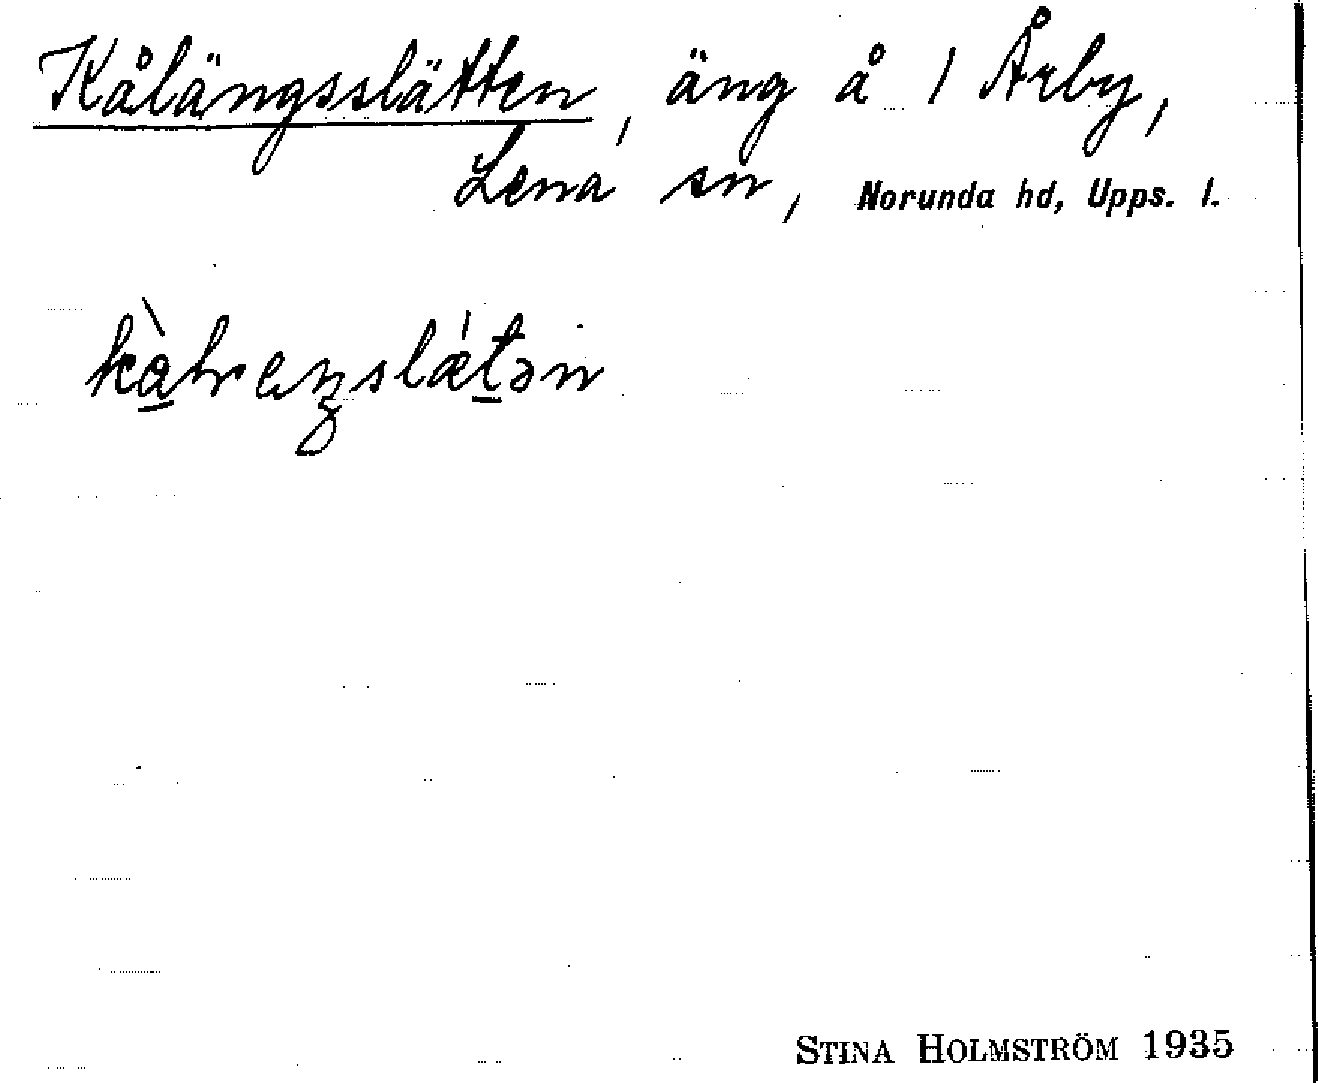 Kålängsslätten, äng å 1 Årby,
Lena sn, Norunda hd, Upps. l.
STINA HOLMSTRÖM 1935